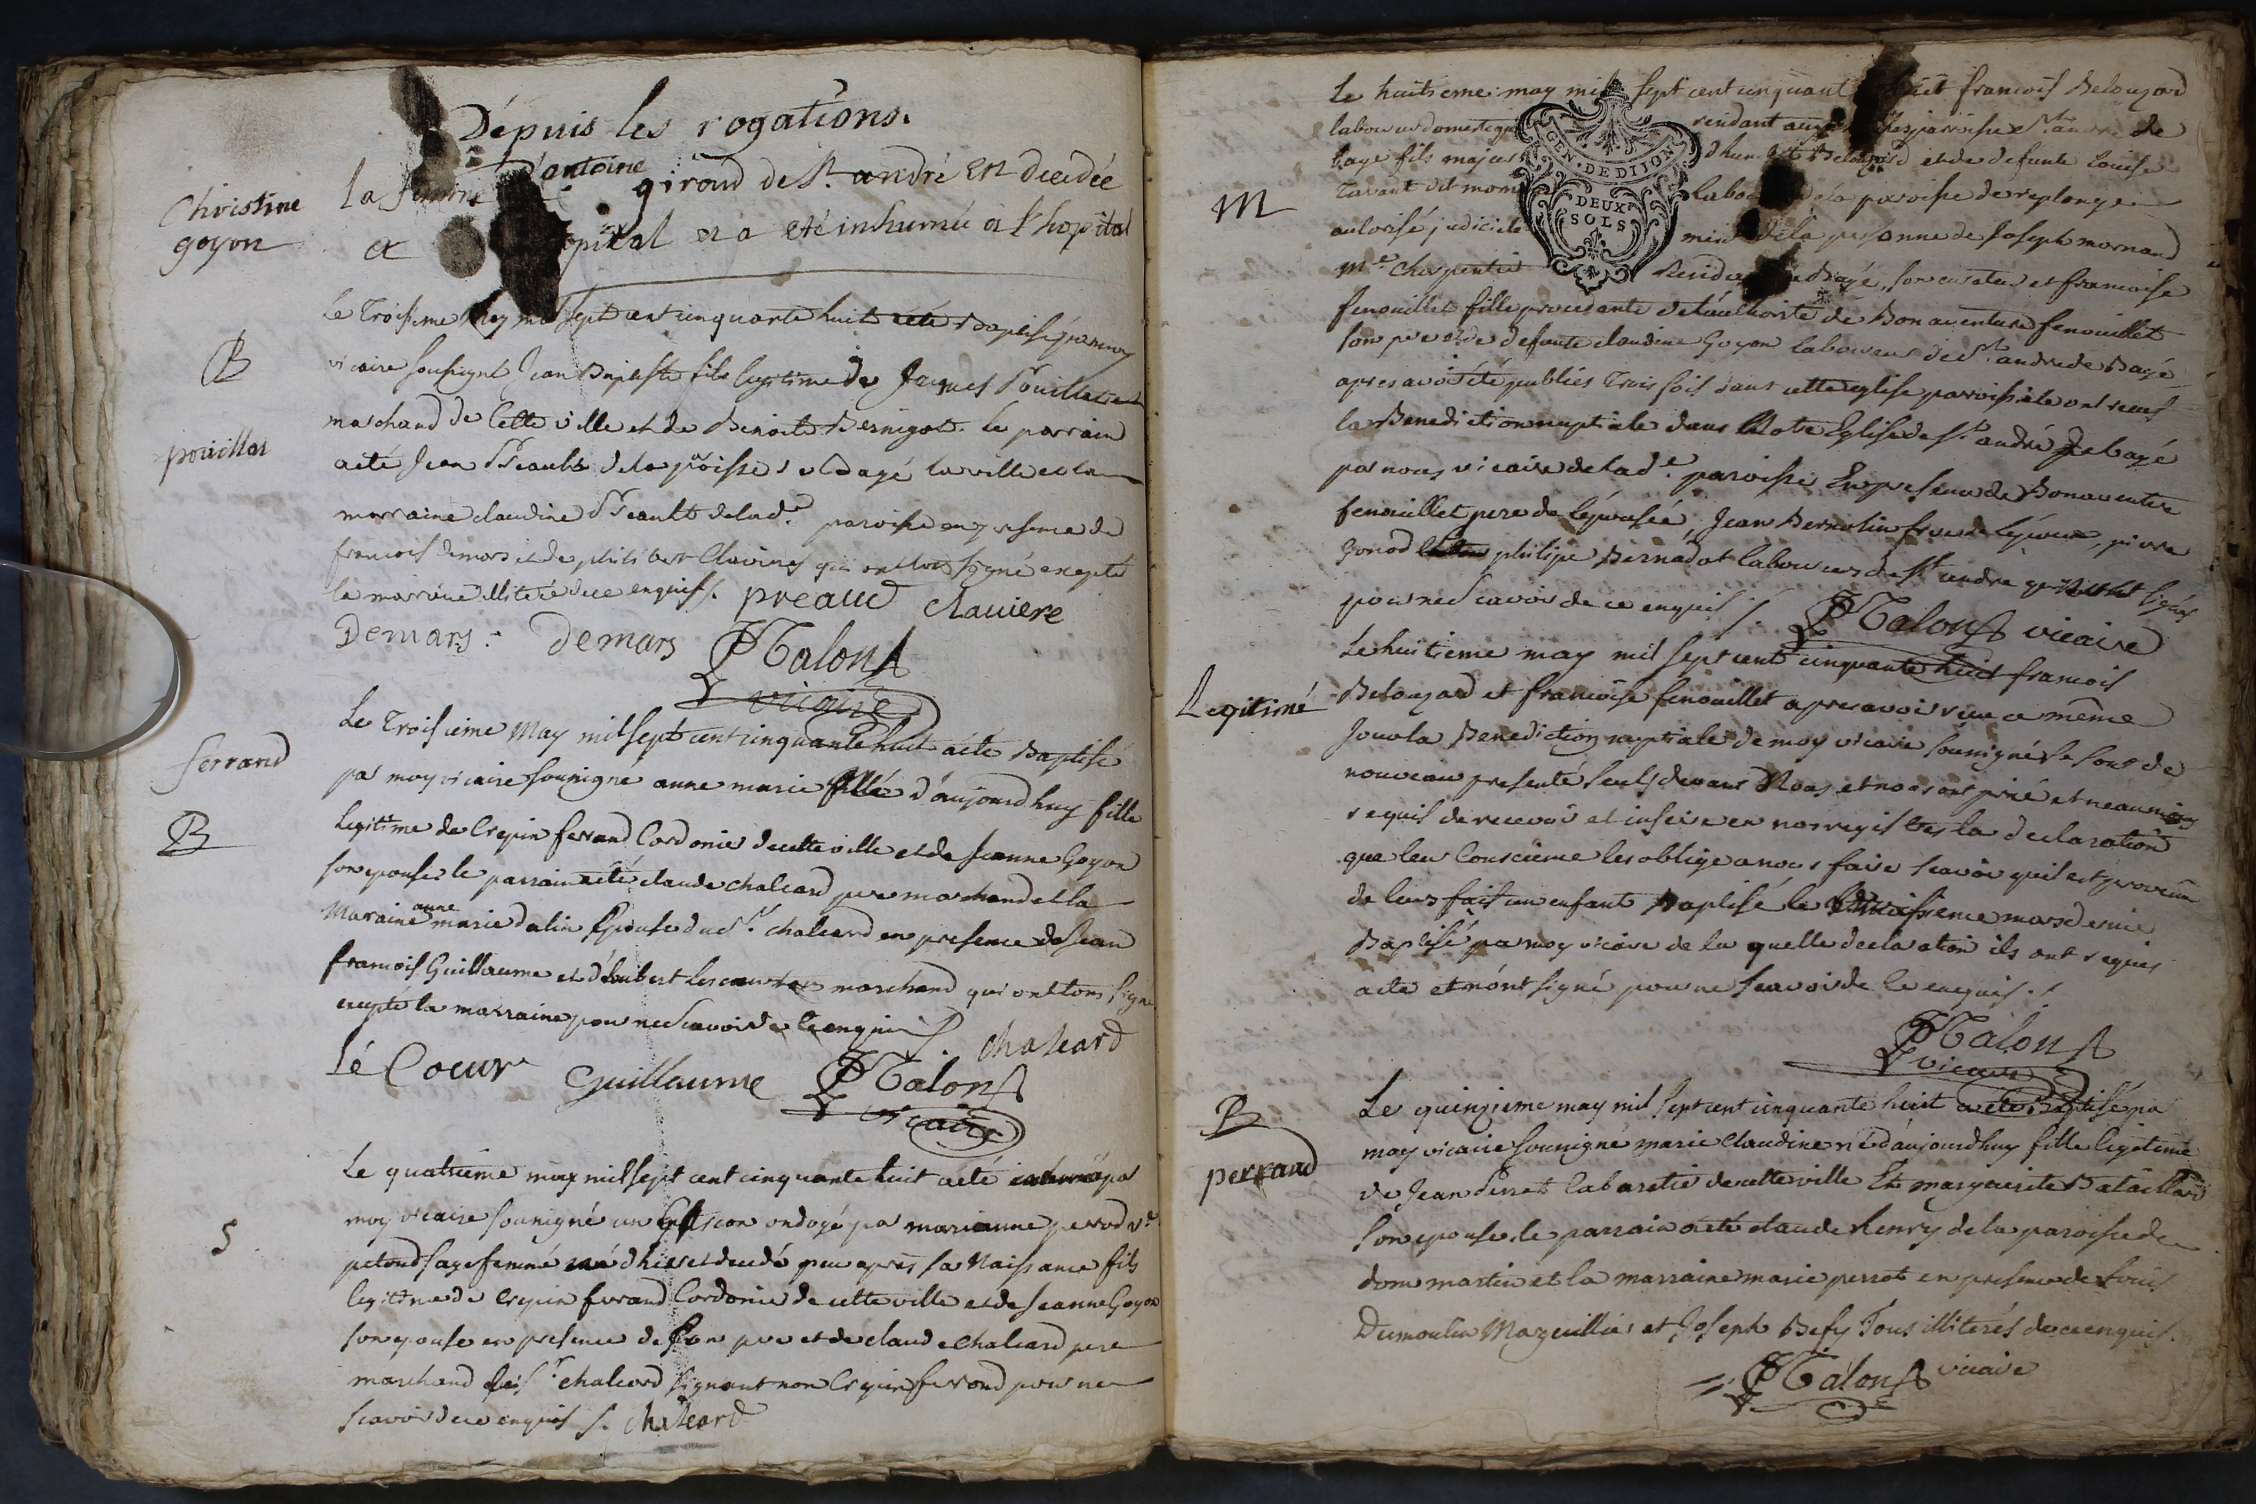 Dépuis les rogations.
Christine
goyon
la femme d'antoine giroud de St. andré Est decedée
a pital et a eté inhumée a l'hopital
B
pouillat
Le Troisieme may mil sept cent cinquante huit a eté Baptisé par moy
vicaire soussigné Jean Baptiste fils legitime de Jaques
marchand de Cette ville et de Benoite Bernigot le parrain
a eté Jean de la paroisse de Bagé la ville et la
marraine claudine de lad.e paroisse en presence de
francois demars et de philibert Claviere qui ont tous signé excepté
la marraine illiterée de ce enquis /. preaud claviere
Demars. demars Talon
vicaire
ferrand
B
Le Troisieme May mil sept cent cinquante huit a eté Baptisé
par moy vicaire soussigné anne marie fille d'aujourdhuy fille
legitime de Crepin ferrand Cordonier de cette ville et de Jeanne Goyon
son epouse le parrain a eté claude chaleard pere marchand et la
Maraine anne marie dalin Epouse du Sr. chaleard en presence de Jean
francois Guillaume et d'humbert marchand qui ont tous signé
excepté la marraine pour ne Scavoir de ce enquis /. chaleard
lé Coeur Guillaume Talon
vicaire
S
Le quatrieme may mil sept cent cinquante huit a eté inhumé par
moy vicaire soussigné un Garcon ondoyé par marianne perrod v.e
petond sage femme né d'hier et decedé peu après sa Naissance fils
legitime de Crepin ferrand Cordonier de cette ville et de Jeanne Goyon
son epouse en presence de son pere et de claude chaleard pere
marchand chaleard signant non Crepin ferrand pour ne
scavoir de ce enquis /. chaleard
M
GEN. DE DIJON
DEUX
SOLS
Le huitieme may mil sept cent cinquante huit francois Belouzard
laboureur domestique residant paroisse St andré de
bagé fils majeur et de defunte Louise
Tavant dit mom de la paroisse de replonge
autorisé de la personne de Joseph mornand
M.e charpentier Bagé, son curateur et francoise
fenouillet fille procedante de l'authorité de Bonaventure fenouillet
son pere et de defunte claudine Goyon laboureur de St. andre de Bagé
apres avoir été publiés Trois fois dans cette eglise paroissiale ont receu
la Benediction nuptiale dans Notre Eglise de St. andré de bagé
par nous vicaire de lad.e paroisse En presence de Bonaventure
fenouillet pere de l'épousée, Jean Bernolin pierre
Gonod philipe Bernadat laboureurs de St andré qui n'ont signés
pour ne Scavoir de ce enquis /. Talon vicaire
Legitimé
Le huitieme may mil sept cent cinquante huit francois
Belouzard et francoise fenouillet apres avoir receu ce même
Jour la Benediction nuptiale de moy vicaire soussigné se sont de
nouveau presenté seuls devant Nous, et nous ont prié et neaumoins
requis de recevoir et inscire en nos registres la declaration
que leur Conscience les oblige a nous faire scavoir qu'il est provenu
de leurs fait un enfant Baptisé le mars dernier
Baptisé par moy vicaire de la quelle declaration ils ont requis
acte et n'ont signé pour ne Scavoir de ce enquis. /
Talon
vicaire
B
perraud
Le quinzieme may mil sept cent cinquante huit a eté Baptisé par
moy vicaire soussigné marie Claudine né d'aujourdhuy fille legitime
de Jean Perret Cabaretier de cette ville Et marguerite Bataillard
son epouse le parrain a eté claude henry de la paroisse de
dommartin et la marraine marie perrot en presence de Louis
Dumoulin Marguillier et Joseph Befy Tous illiterés de ce enquis.
Talon vicaire